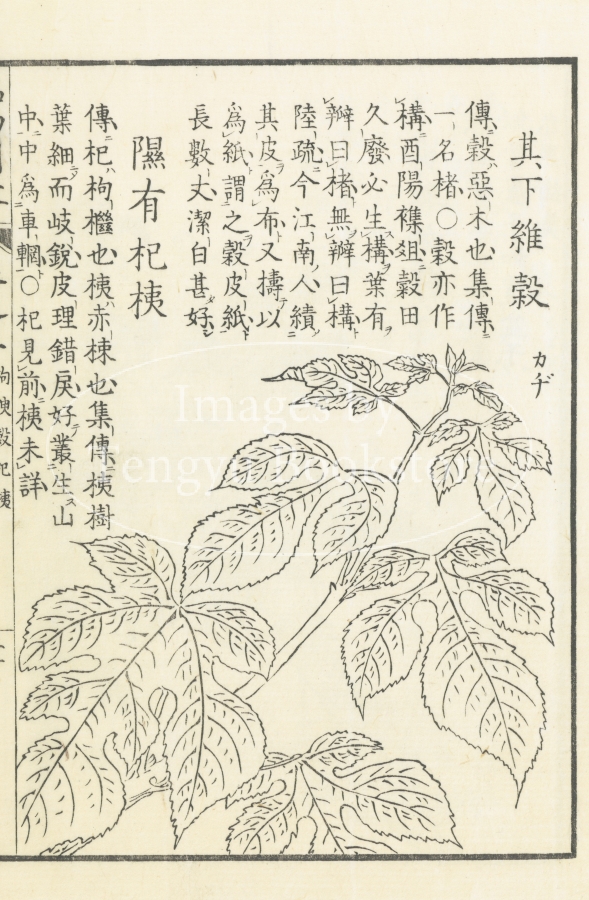 其下維穀
カヂ
傳穀惡木也集傳ニ
一名楮〇穀亦作
構酉陽襍俎ニ穀田
久廢必生構葉有
辦曰楮無辦曰構
陸疏ニ今江南人績
其皮為布又擣以
為紙謂之穀皮紙
長數丈潔白甚好
隰有杞桋
傳杞枸檵也桋赤梀也集傳桋樹
葉細而岐銳皮理錯戾好叢生山
中中為車輞〇杞見前桋未詳
Images by
Tengyu Bookstore